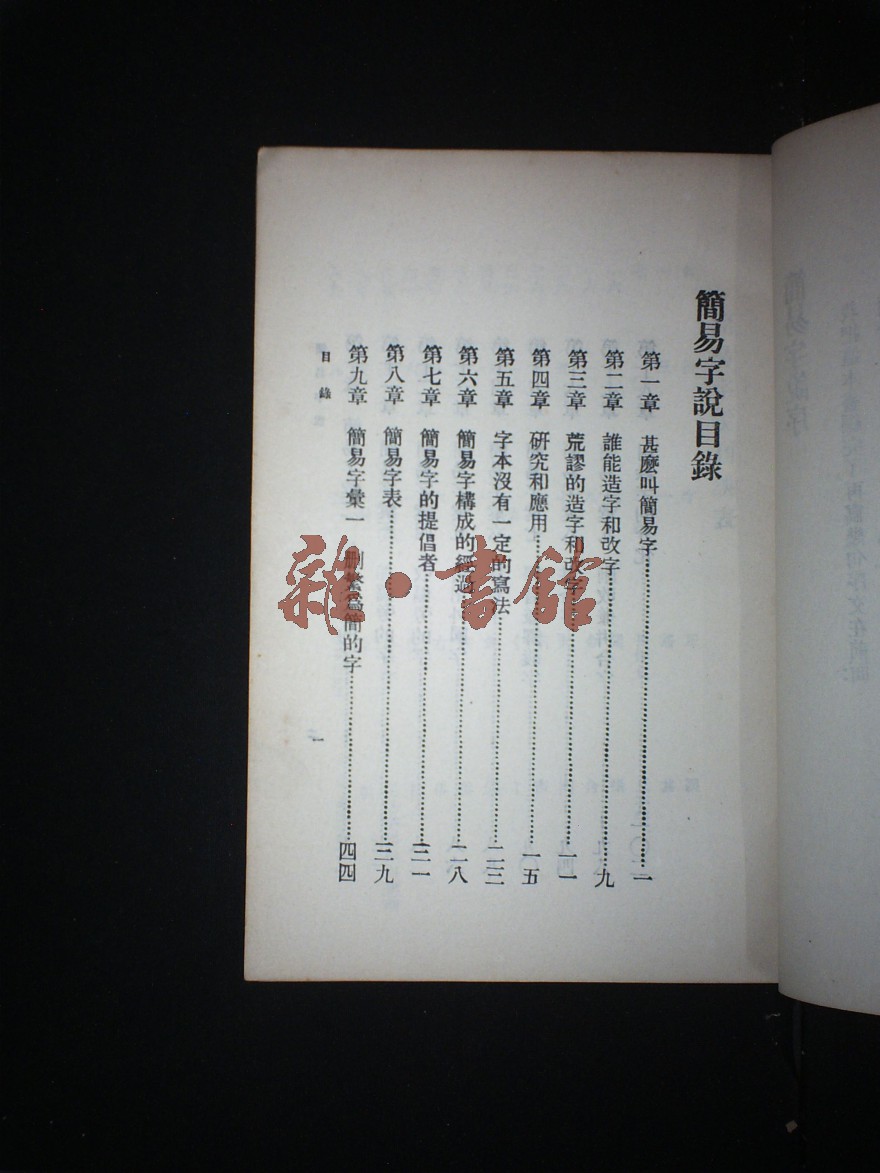 簡易字說目錄
第一章 甚麼叫簡易字……一
第二章 誰能造字和改字……九
第三章 荒謬的造字和改字……一一
第四章 研究和應用……一五
第五章 字本沒有一定的寫法……二三
第六章 簡易字構成的經過……二八
第七章 簡易字的提倡者……三一
第八章 簡易字表……三九
第九章 簡易字彙一 刪繁為簡的字……四四
目錄
一
雜·書館